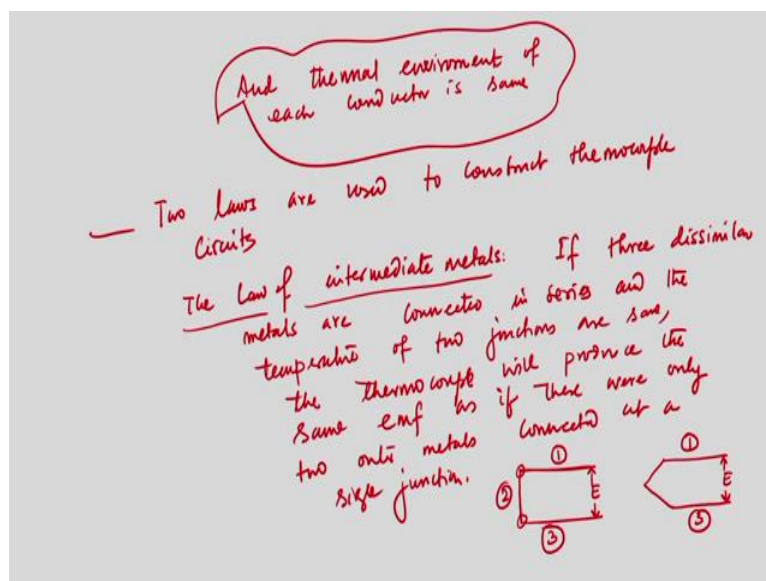 And thermal enviroment of
each conductor is same
Two laws are used to construct thermocouple
Circuits
The Law of intermediate metals: If three dissimilar
metals are connected in series and the
temperature of two junctions are same,
the thermocouple will produce the
same emf as if there were only
two metals connected at a
single junction.
① ①
② E E
③ ③